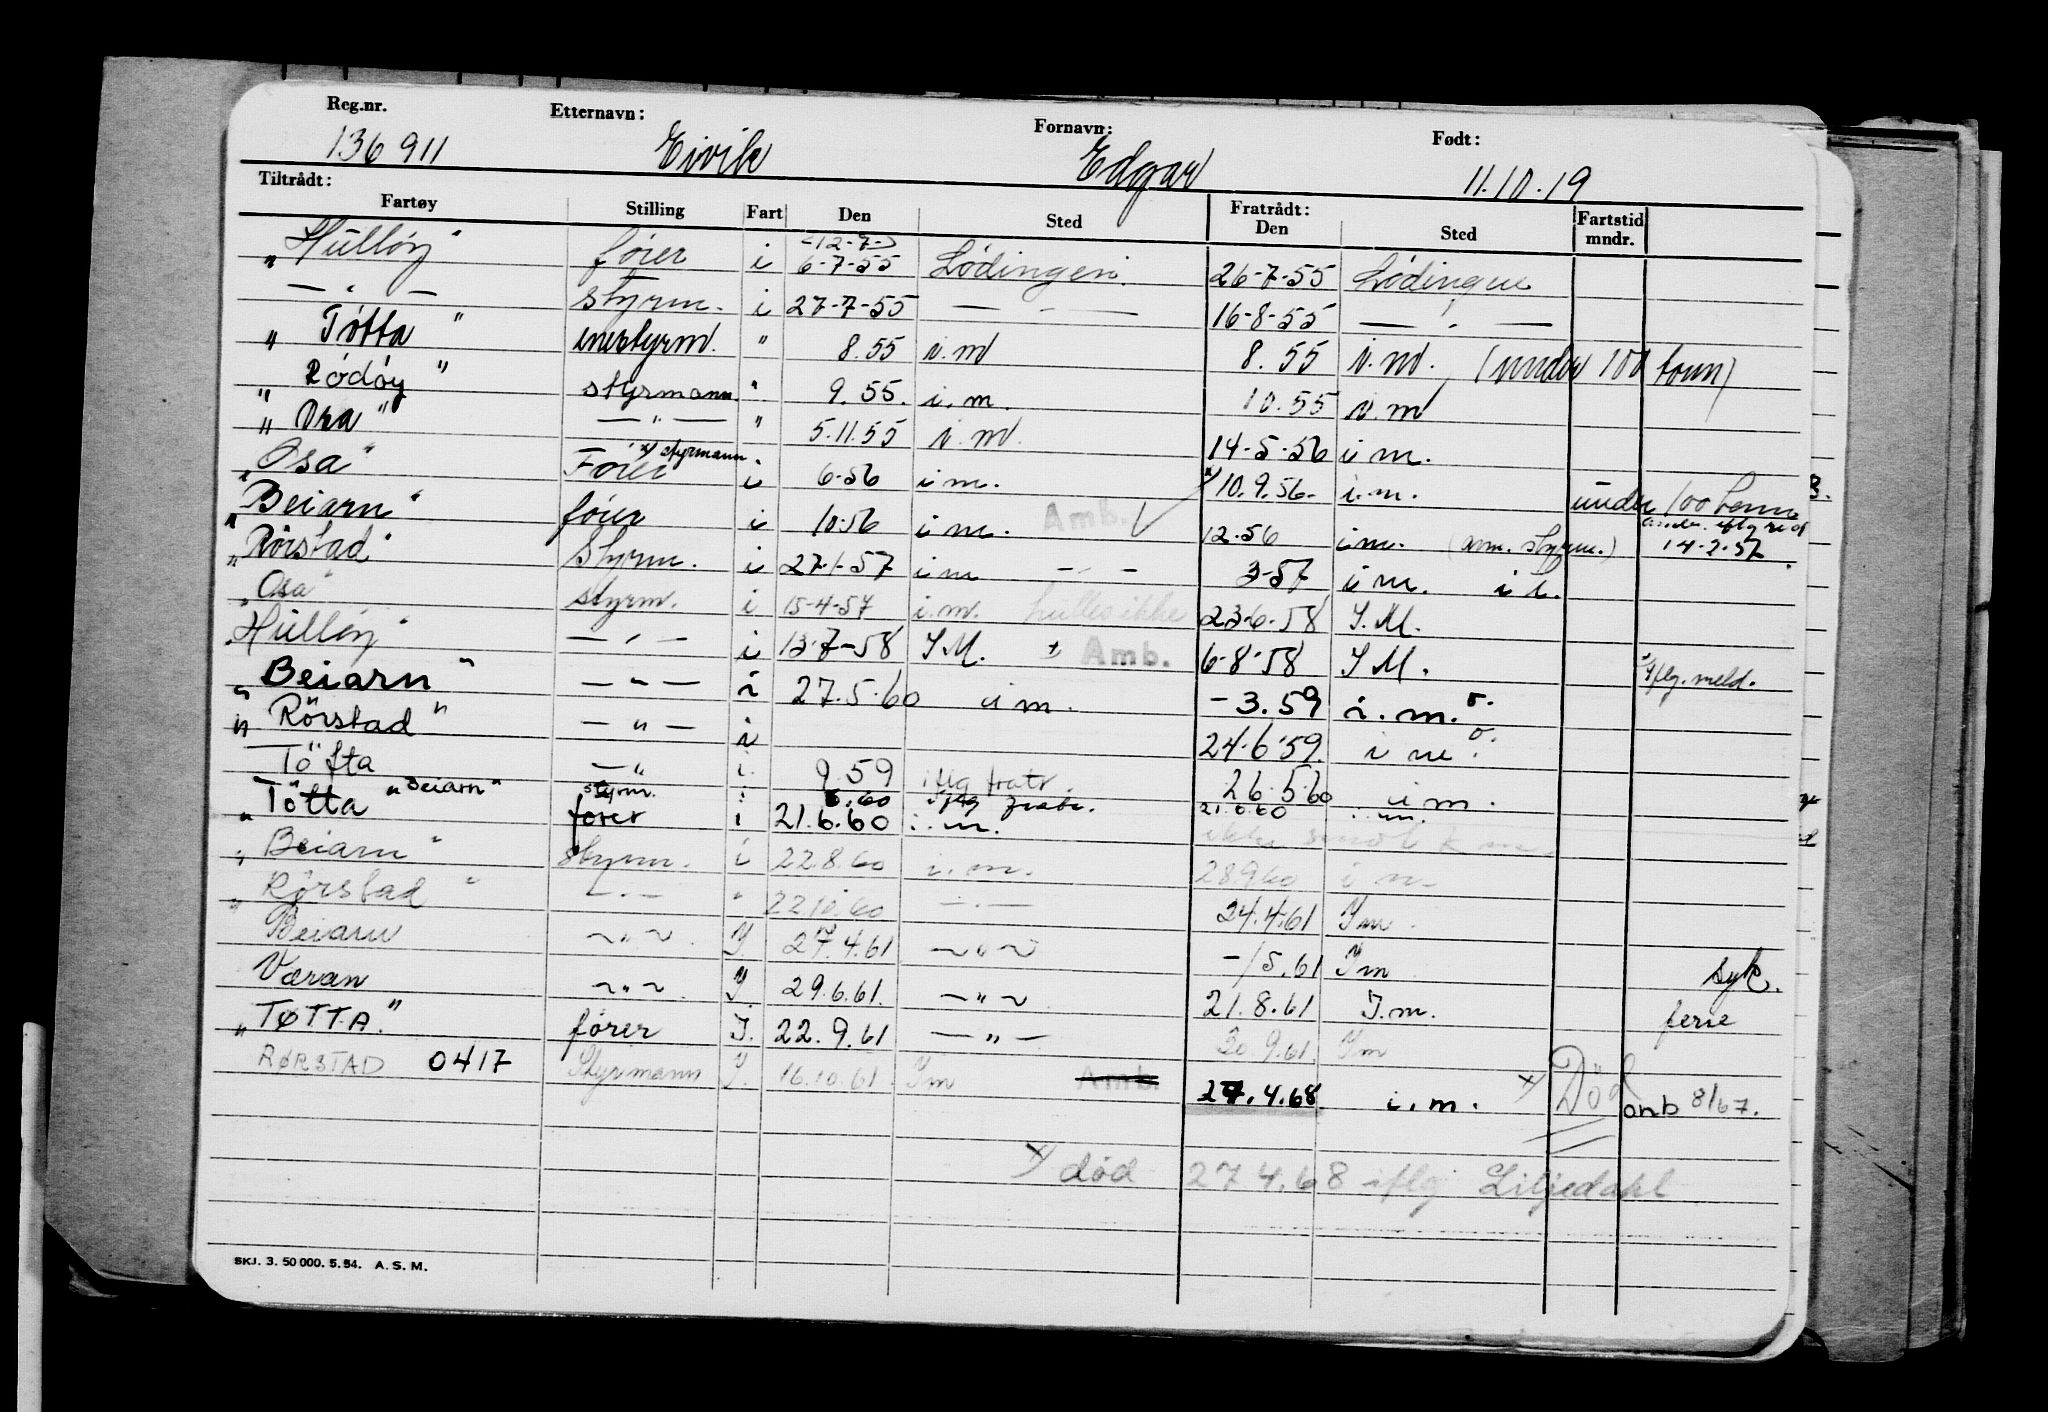 Reg.nr. Etternavn: Fornavn: Født:
136 911 Eivik Edgar 11.10.19
Tiltrådt: Fratrådt:
Fartøy Stilling Fart Den Sted Den Sted Fartstid mndr.
<12-7->
"Hulløy" fører i 6-7-55 Lødingen 26-7-55 Lødingen
— " — styrm. i 27-7-55 — " — 16-8-55 — " —
"Tøtta" enestyrm. " 8.55 i.m 8.55 i.m. (under 100 tonn)
"Rødøy" styrmann " 9.55. i.m. 10.55 i.m
"Ora" — " — " 5.11.55 i.m. 14-5-56 i m.
"Osa" Fører x) styrmann i 6-56 i m. x) 10.9.56. i.m. under 100 tonn
"Beiarn" fører i 10-56 i m. Amb. 12.56 i m. (som styrm.) 14-2-57
"Rørstad" Styrm. i 27-1-57 i m — " — 3-57 i m.
"Osa" styrm. i 15-4-57 i.m. hulles ikke 23-6-58 I.M.
"Hulløy" — " — i 13-7-58 I M. Amb. 6-8-58 I M. iflg. meld.
"Beiarn" — " — i 27.5.60 i m. -3.59 i.m.
"Rörstad" — " — i 24-6-59. i m.
Töfta — " i. 9.59 iflg fratr. 26.5.60 i m.
"Beiarn" styrm. i 6.60 iflg fratr. 21.6.60 i m.
"Tötta" fører i 21.6.60 i. m.
"Beiarn" Styrm. i 22.8.60 i. m. 28.9.60 i m
"Rørstad" — " — " 22.10.60 — " — 24.4.61 Im.
Beiarn ~ " ~ I 27.4.61 ~ " ~ -/5.61 Im syk.
Væran ~ " ~ I. 29.6.61. ~ " ~ 21.8.61 I.m. ferie
"TØTTA." fører I. 22.9.61 — " — 30.9.61. Im
RØRSTAD 0417 Styrmann I. 16.10.61 Im Amb. 27.4.68. i.m. x) Död omb 8/67.
x) død 27 4.68 iflg Liljedahl
SKJ. 3. 50 000. 5. 54. A. S. M.